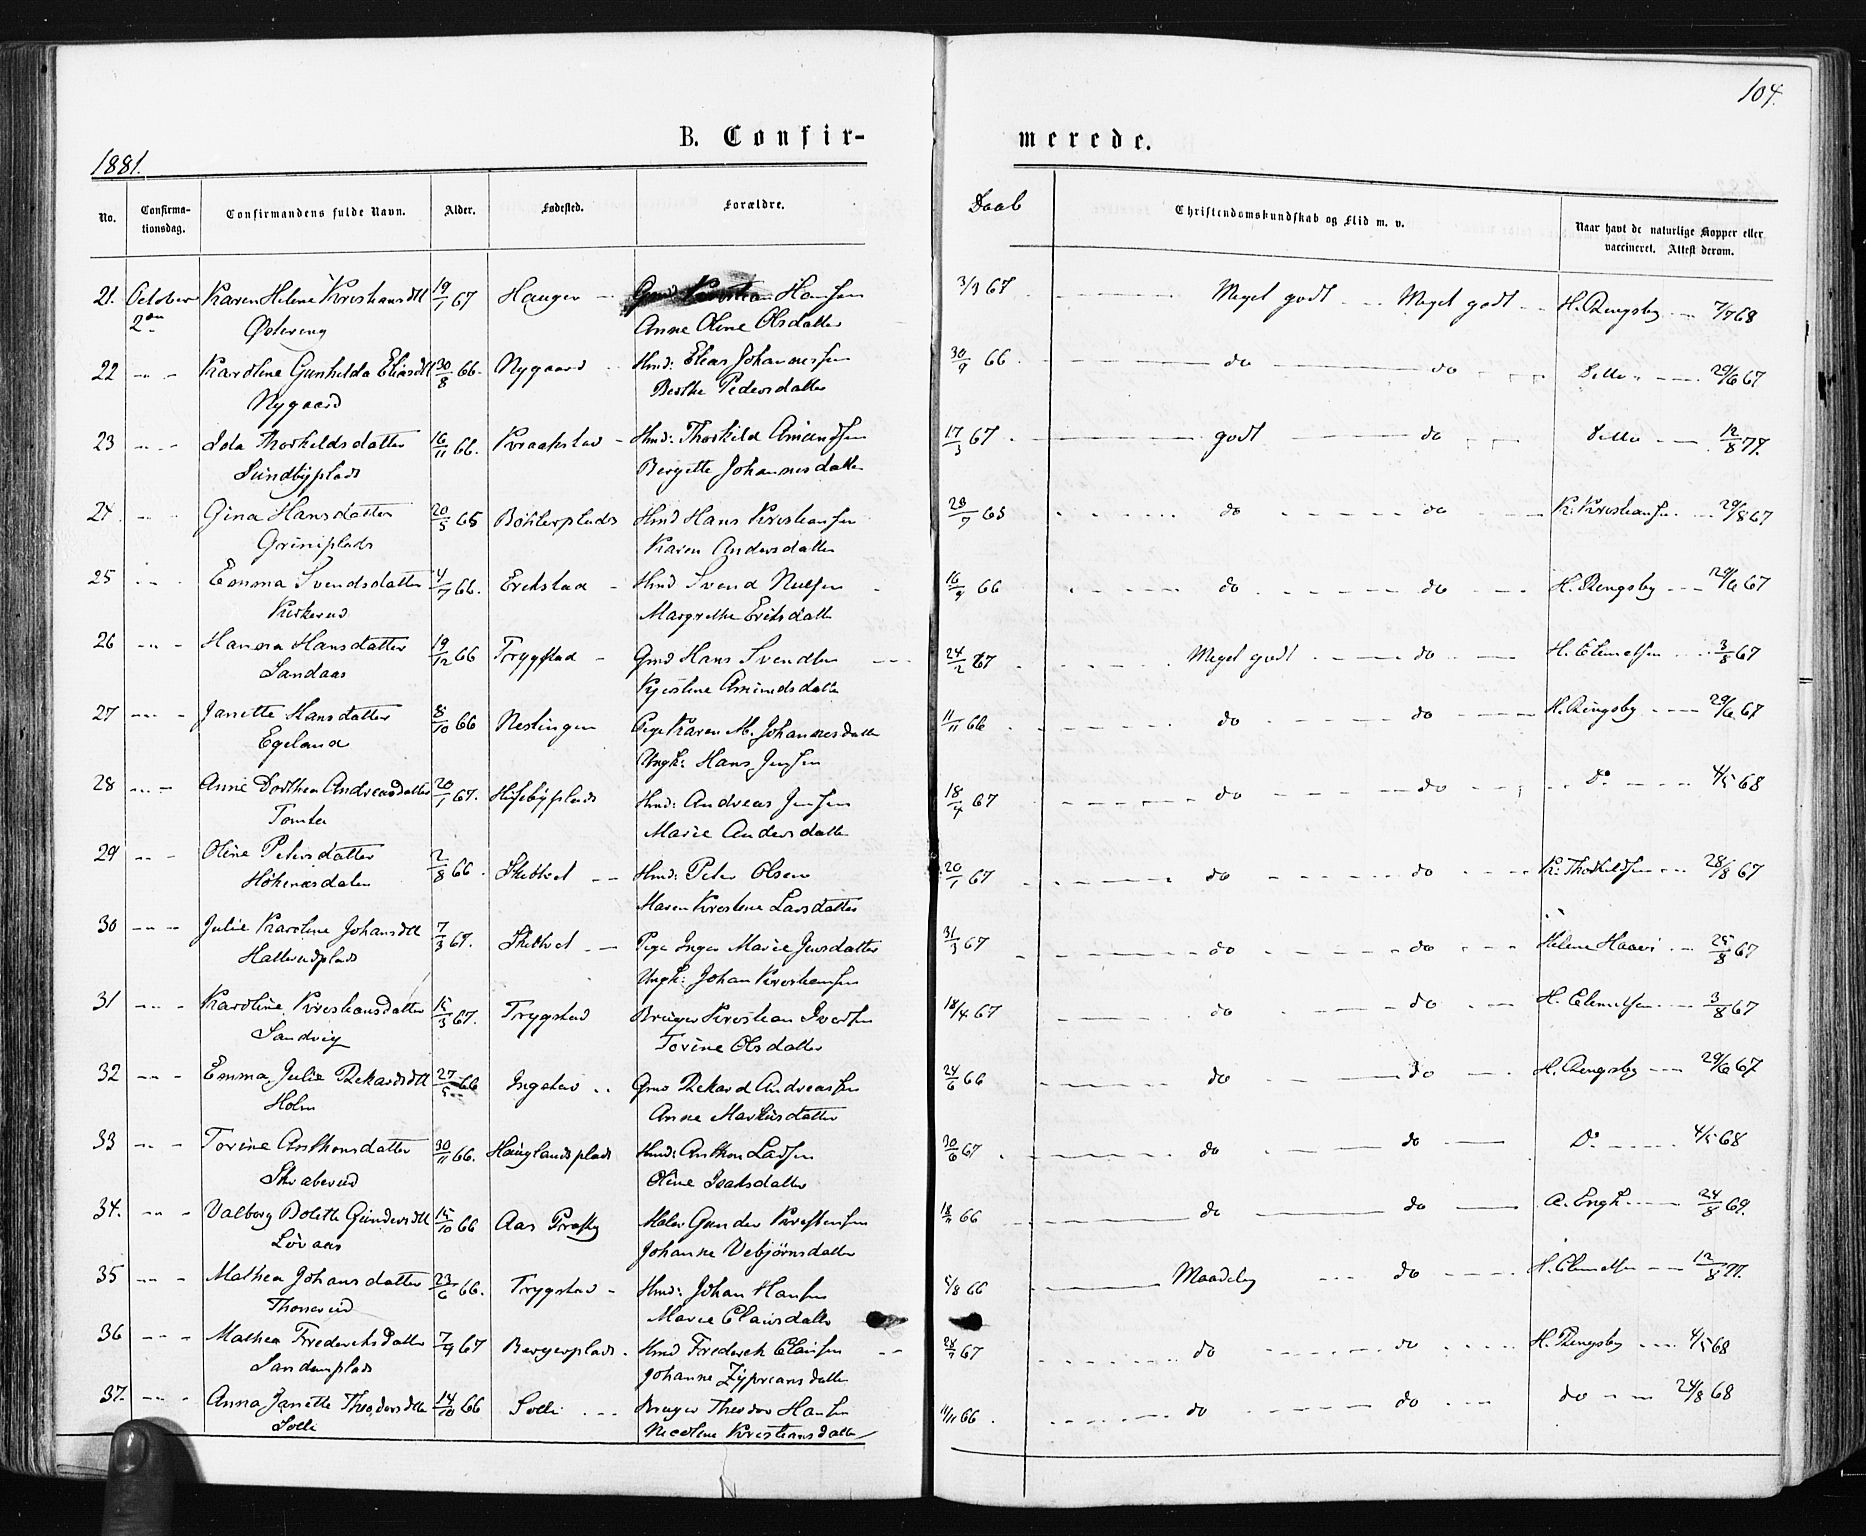 104.
B. Confir-
merede.
1881.
No.
Confirma-
tionsdag.
Confirmandens fulde Navn.
Alder.
Fødested.
Forældre.
Daab
Christendomskundskab og Flid m. v.
Naar havt de naturlige Kopper eller
vaccineret. Attest derom.
21. October Karen Helene Kristiansdtt 19/1 67 Hauger — Gmd Kristian Hansen 3/3 67 Meget godt Meget godt H. Rengsby 7/7 68
2den Østereng Anne Oline Olsdatter
22 Karoline Gunhilda Eliasdtt 30/8 66. Nygaard Hmd: Elias Johannessen 30/9 66 do do Ditto 29/6 67
Nygaard Berthe Pedersdatter
23 Ida Thorkildsdatter 16/11 66. Kraakstad Hmd: Thorkild Amundsen 17/3 67 godt do Ditto 12/8 77.
Sundbyplads Bergitte Johannesdatter
24 Gina Hansdatter 20/5 65 Böhlerplads Hmd Hans Kristiansen 23/7 65 do do K. Kristiansen 29/8 67
Griniplads Karen Andersdatter
25 Emma Svendsdatter 4/7 66. Erikstad Hmd Svend Nielsen 16/9 66 do do H. Rengsby 29/6 67
Kirkerud Margrethe Eriksdatter
26 Hanna Hansdatter 19/12 66 Trygstad Gmd Hans Svendsen 24/2 67 Meget godt do H. Clemetsen 3/8 67
Sandaas Kjerstine Amundsdatter
27 Janette Hansdatter 8/10 66 Neslingen Pige Karen M. Johannesdatter 11/11 66 do do H. Rengsby 29/6 67
Egeland Ungk: Hans Jensen
28 Anne Dorthea Andreasdatter 20/1 67. Husebyplads Hmd: Andreas Jensen 18/4 67 do do Do 4/5 68
Tomter Marie Andersdatter
29 Oline Petersdatter 2/8 66. Skibtvet Hmd: Peter Olsen 20/1 67 do do K. Thorkildsen 28/8 67
Maren Kristine Larsdatter
30 Julie Karoline Johansdtt 7/3 67. Skibtvet Pige Inger Marie Jensdatter 31/3 67 do do Helene Haaver 25/8 67
Ungk: Johan Kristiansen
31 Karoline Kristiansdatter 15/3 67. Trygstad Bruger Kristian Iversen 18/4 67 do do H. Clemetsen 3/8 67
Sandvig Torine Olsdatter
32 Emma Julie Rikardsdtt 27/5 66 Ingstad Gmd Rikard Andreassen 24/6 66 do do H. Rengsby 29/6 67
Holm Anne Markusdatter
33 Torine Anthonsdatter 30/11 66. Hauglandsplads Hmd: Anthon Larsen 30/6 67 do do Do 4/5 68
Skraberud Oline Isaksdatter
34. Valborg Bolette Gundersdtt 15/10 66 Aas Præstg Maler Gunder Kristensen 18/11 66 do do A. Engh 24/8 69.
Løvaas Johanne Vebjørnsdatter
35 Mathea Johansdatter 23/6 66. Trygstad Hmd: Johan Hansen 5/8 66 Maadelig do H. Clemetsen 12/8 77.
Thonerud Marie Clausdatter
36 Mathea Frederiksdatter 7/4 67 Bergerplads. Hmd Frederik Clausen 67 do do H. Rengsby 4/5 68
Johanne Zypriansdatter
37. Anna Janette Theodorsdtt 14/10 66 Solli Bruger Theodor Hansen 11/11 66 do do do 24/8 68
Solli Nicoline Kristiansdatter